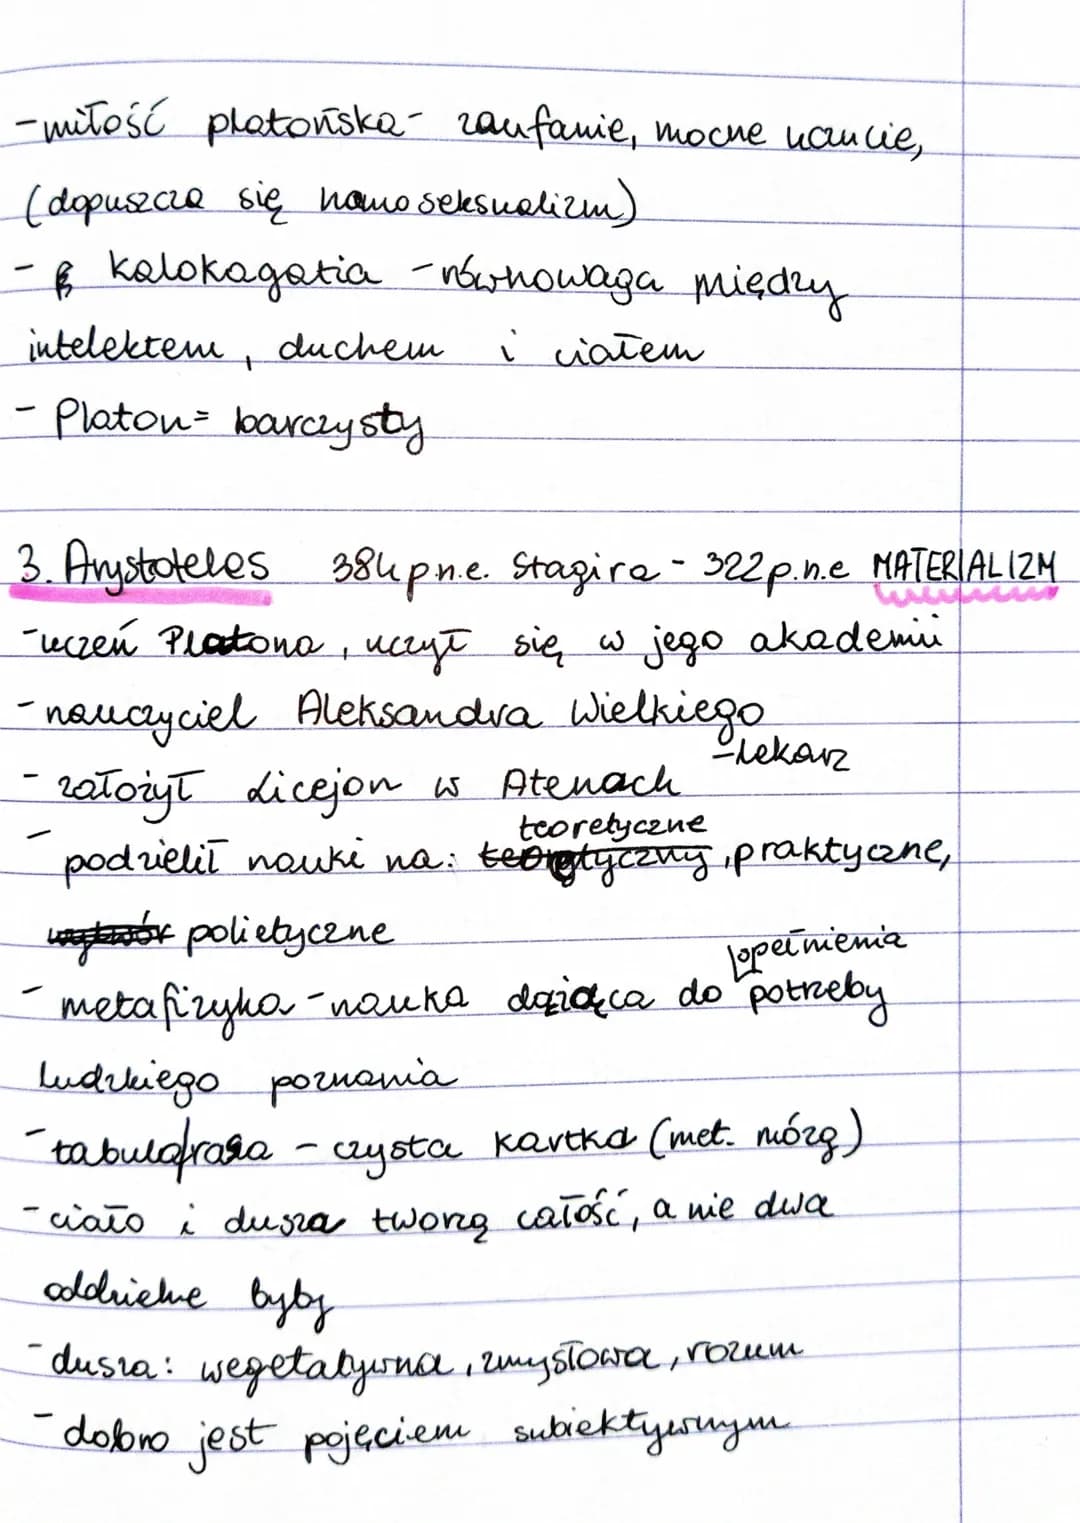 -miłość platońska- zaufanie, mocne uczucie,
(dopuszcza się homoseksualizm)
- kalokagatia -równowaga między
intelektem, duchem i ciałem
- Platon= barczysty
3. Arystoteles 384 p.n.e. Stagira - 322 p.n.e MATERIALIZM
-uczeń Platona, uczył się w jego akademii
-nauczyciel Aleksandra Wielkiego
-lekarz
- założył Licejon w Atenach
teoretyczne
- podzielił nauki na: teoretyczny, praktyczne,
wytwór polietyczne
opełnienia
- metafizyka -nauka dążąca do potrzeby
ludzkiego poznania
- tabula rasa - czysta kartka (met. mózg)
- ciało i dusza tworzą całość, a nie dwa
oddzielne byby
- dusza: wegetatywna, zmysłowa, rozum
- dobro jest pojęciem subiektywnym